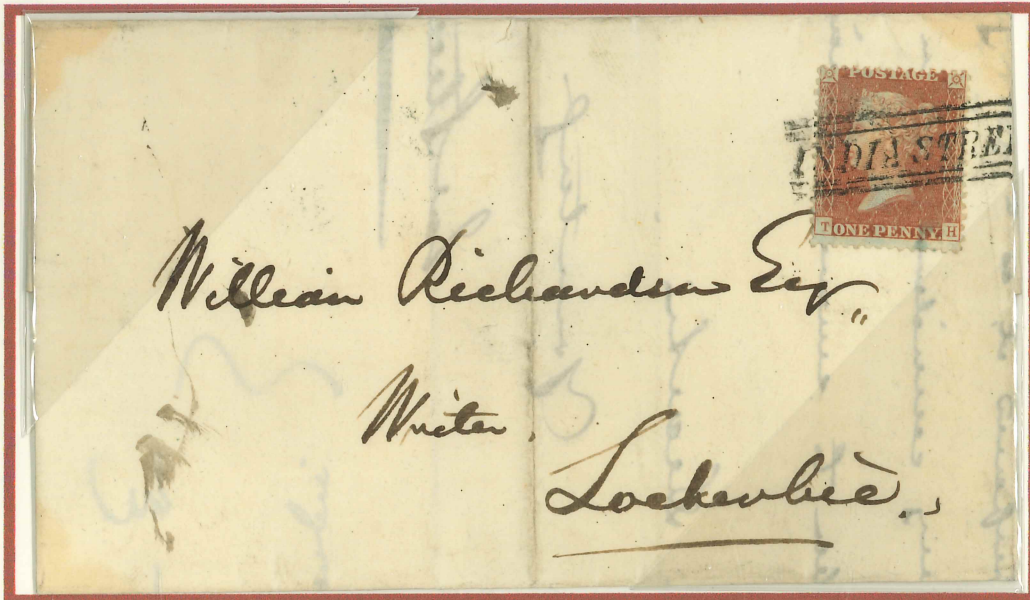 POSTAGE
INDIA STREE
T ONE PENNY H
William Richardson Esq
Writer
Lockerbie